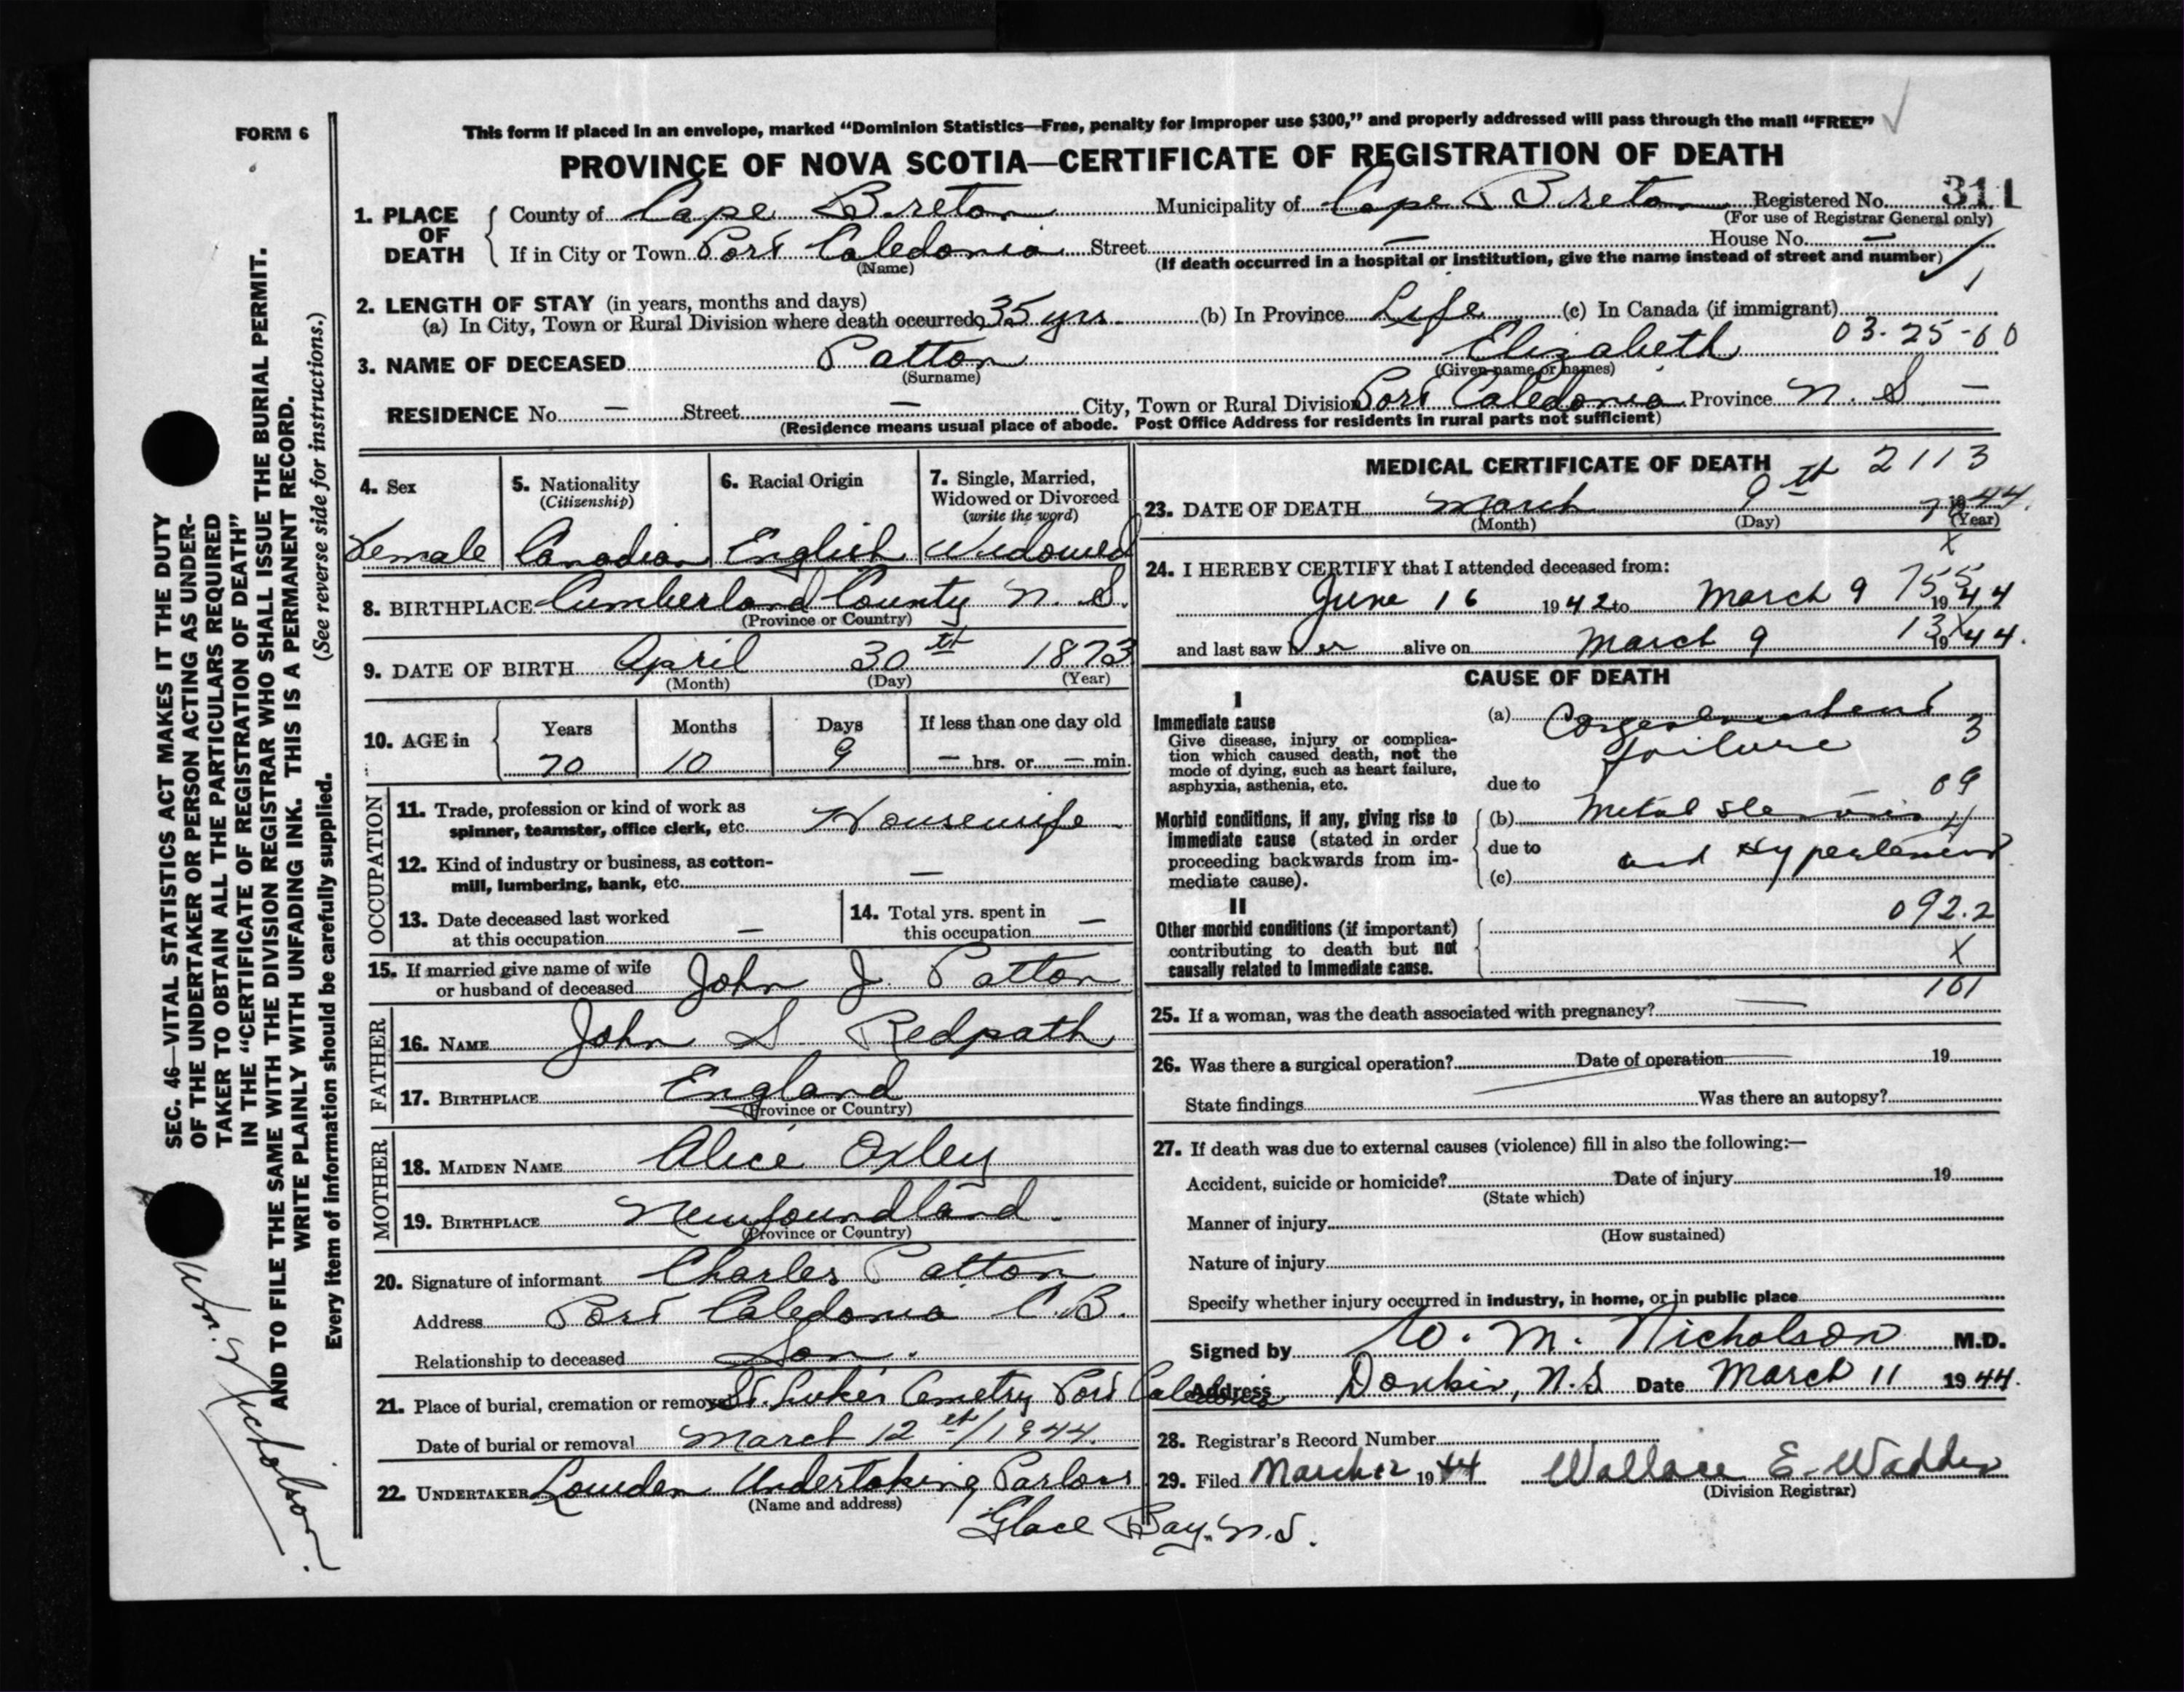 FORM 6
This form if placed in an envelope, marked “Dominion Statistics—Free, penalty for improper use $300,” and properly addressed will pass through the mail “FREE”
PROVINCE OF NOVA SCOTIA—CERTIFICATE OF REGISTRATION OF DEATH
1. PLACE OF DEATH County of Cape Breton Municipality of Cape Breton Registered No. 311
(For use of Registrar General only)
If in City or Town Port Caledonia Street — House No. —
(Name) (If death occurred in a hospital or institution, give the name instead of street and number)
2. LENGTH OF STAY (in years, months and days)
(a) In City, Town or Rural Division where death occurred 35 yrs. (b) In Province Life (c) In Canada (if immigrant)
03-25-60
3. NAME OF DECEASED Patton Elizabeth
(Surname) (Given name or names)
RESIDENCE No. — Street — City, Town or Rural Division Port Caledonia Province N. S. —
(Residence means usual place of abode. Post Office Address for residents in rural parts not sufficient)
4. Sex 5. Nationality (Citizenship) 6. Racial Origin 7. Single, Married, Widowed or Divorced (write the word)
Female Canadian English Widowed
8. BIRTHPLACE Cumberland County N. S.
(Province or Country)
9. DATE OF BIRTH April 30th 1873
(Month) (Day) (Year)
10. AGE in Years Months Days If less than one day old
70 10 9 — hrs. or — min.
OCCUPATION
11. Trade, profession or kind of work as
spinner, teamster, office clerk, etc. Housewife
12. Kind of industry or business, as cotton-
mill, lumbering, bank, etc. —
13. Date deceased last worked
at this occupation —
14. Total yrs. spent in
this occupation —
15. If married give name of wife
or husband of deceased John J. Patton
FATHER
16. NAME John S. Redpath
17. BIRTHPLACE England
(Province or Country)
MOTHER
18. MAIDEN NAME Alice Oxley
19. BIRTHPLACE Newfoundland
(Province or Country)
20. Signature of informant Charles Patton
Address Port Caledonia C.B.
Relationship to deceased Son.
21. Place of burial, cremation or removal St. Luke's Cemetry Port Caledonia
Date of burial or removal March 12th/1944.
22. UNDERTAKER Lowden Undertaking Parlors
(Name and address)
Glace Bay. N.S.
MEDICAL CERTIFICATE OF DEATH 2113
23. DATE OF DEATH March 9th 1944.
(Month) (Day) (Year)
X
24. I HEREBY CERTIFY that I attended deceased from:
755
June 16 1942 to March 9 1944
13X
and last saw her alive on March 9 1944.
CAUSE OF DEATH
I
Immediate cause
Give disease, injury or complica-
tion which caused death, not the
mode of dying, such as heart failure,
asphyxia, asthenia, etc.
(a)
failure 3
due to 09
Morbid conditions, if any, giving rise to
immediate cause (stated in order
proceeding backwards from im-
mediate cause).
(b) 4
due to and
(c)
II
Other morbid conditions (if important)
contributing to death but not
causally related to immediate cause.
092.2
X
101
25. If a woman, was the death associated with pregnancy? —
26. Was there a surgical operation? Date of operation 19
State findings Was there an autopsy?
27. If death was due to external causes (violence) fill in also the following:—
Accident, suicide or homicide? Date of injury 19
(State which)
Manner of injury
(How sustained)
Nature of injury
Specify whether injury occurred in industry, in home, or in public place
Signed by W. M. Nicholson M.D.
Address Donkin, N.S Date March 11 1944.
28. Registrar's Record Number
29. Filed March 12 1944 Wallace E. Wadden
(Division Registrar)
SEC. 46—VITAL STATISTICS ACT MAKES IT THE DUTY
OF THE UNDERTAKER OR PERSON ACTING AS UNDER-
TAKER TO OBTAIN ALL THE PARTICULARS REQUIRED
IN THE “CERTIFICATE OF REGISTRATION OF DEATH”
AND TO FILE THE SAME WITH THE DIVISION REGISTRAR WHO SHALL ISSUE THE BURIAL PERMIT.
WRITE PLAINLY WITH UNFADING INK. THIS IS A PERMANENT RECORD.
Every item of information should be carefully supplied. (See reverse side for instructions.)
Nicholson